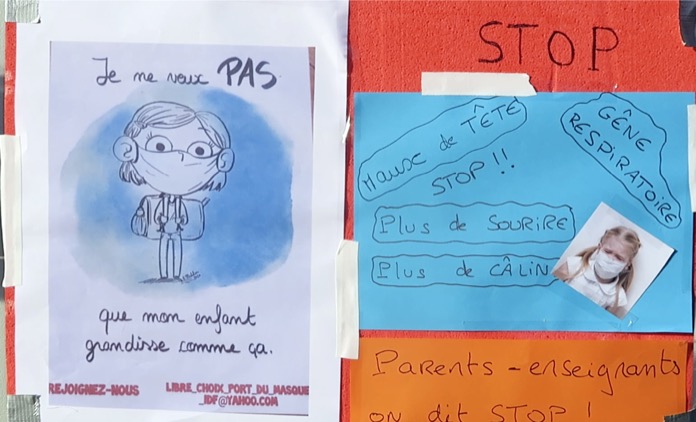 Je ne veux PAS
que mon enfant
grandisse comme ça.
REJOIGNEZ-NOUS
LIBRE_CHOIX_PORT_DU_MASQUE
_IDF@YAHOO.COM
STOP
Maux de TÊTE
STOP !!
GÊNE
RESPIRATOIRE
Plus de SOURIRE
Plus de CÂLIN
Parents - enseignants
on dit STOP !